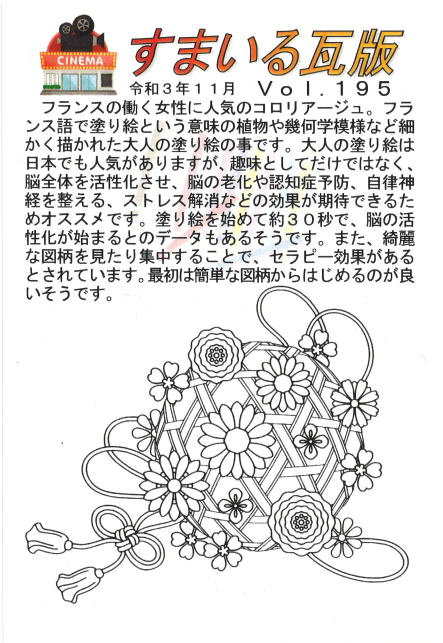 CINEMA
すまいる瓦版
令和３年１１月　Ｖｏｌ．１９５
フランスの働く女性に人気のコロリアージュ。フラ
ンス語で塗り絵という意味の植物や幾何学模様など細
かく描かれた大人の塗り絵の事です。大人の塗り絵は
日本でも人気がありますが、趣味としてだけではなく、
脳全体を活性化させ、脳の老化や認知症予防、自律神
経を整える、ストレス解消などの効果が期待できるた
めオススメです。塗り絵を始めて約３０秒で、脳の活
性化が始まるとのデータもあるそうです。また、綺麗
な図柄を見たり集中することで、セラピー効果がある
とされています。最初は簡単な図柄からはじめるのが良
いそうです。